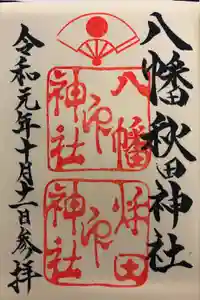 八幡秋田神社
八幡
神社
印
秋田
神社
印
令和元年十月十二日参拝